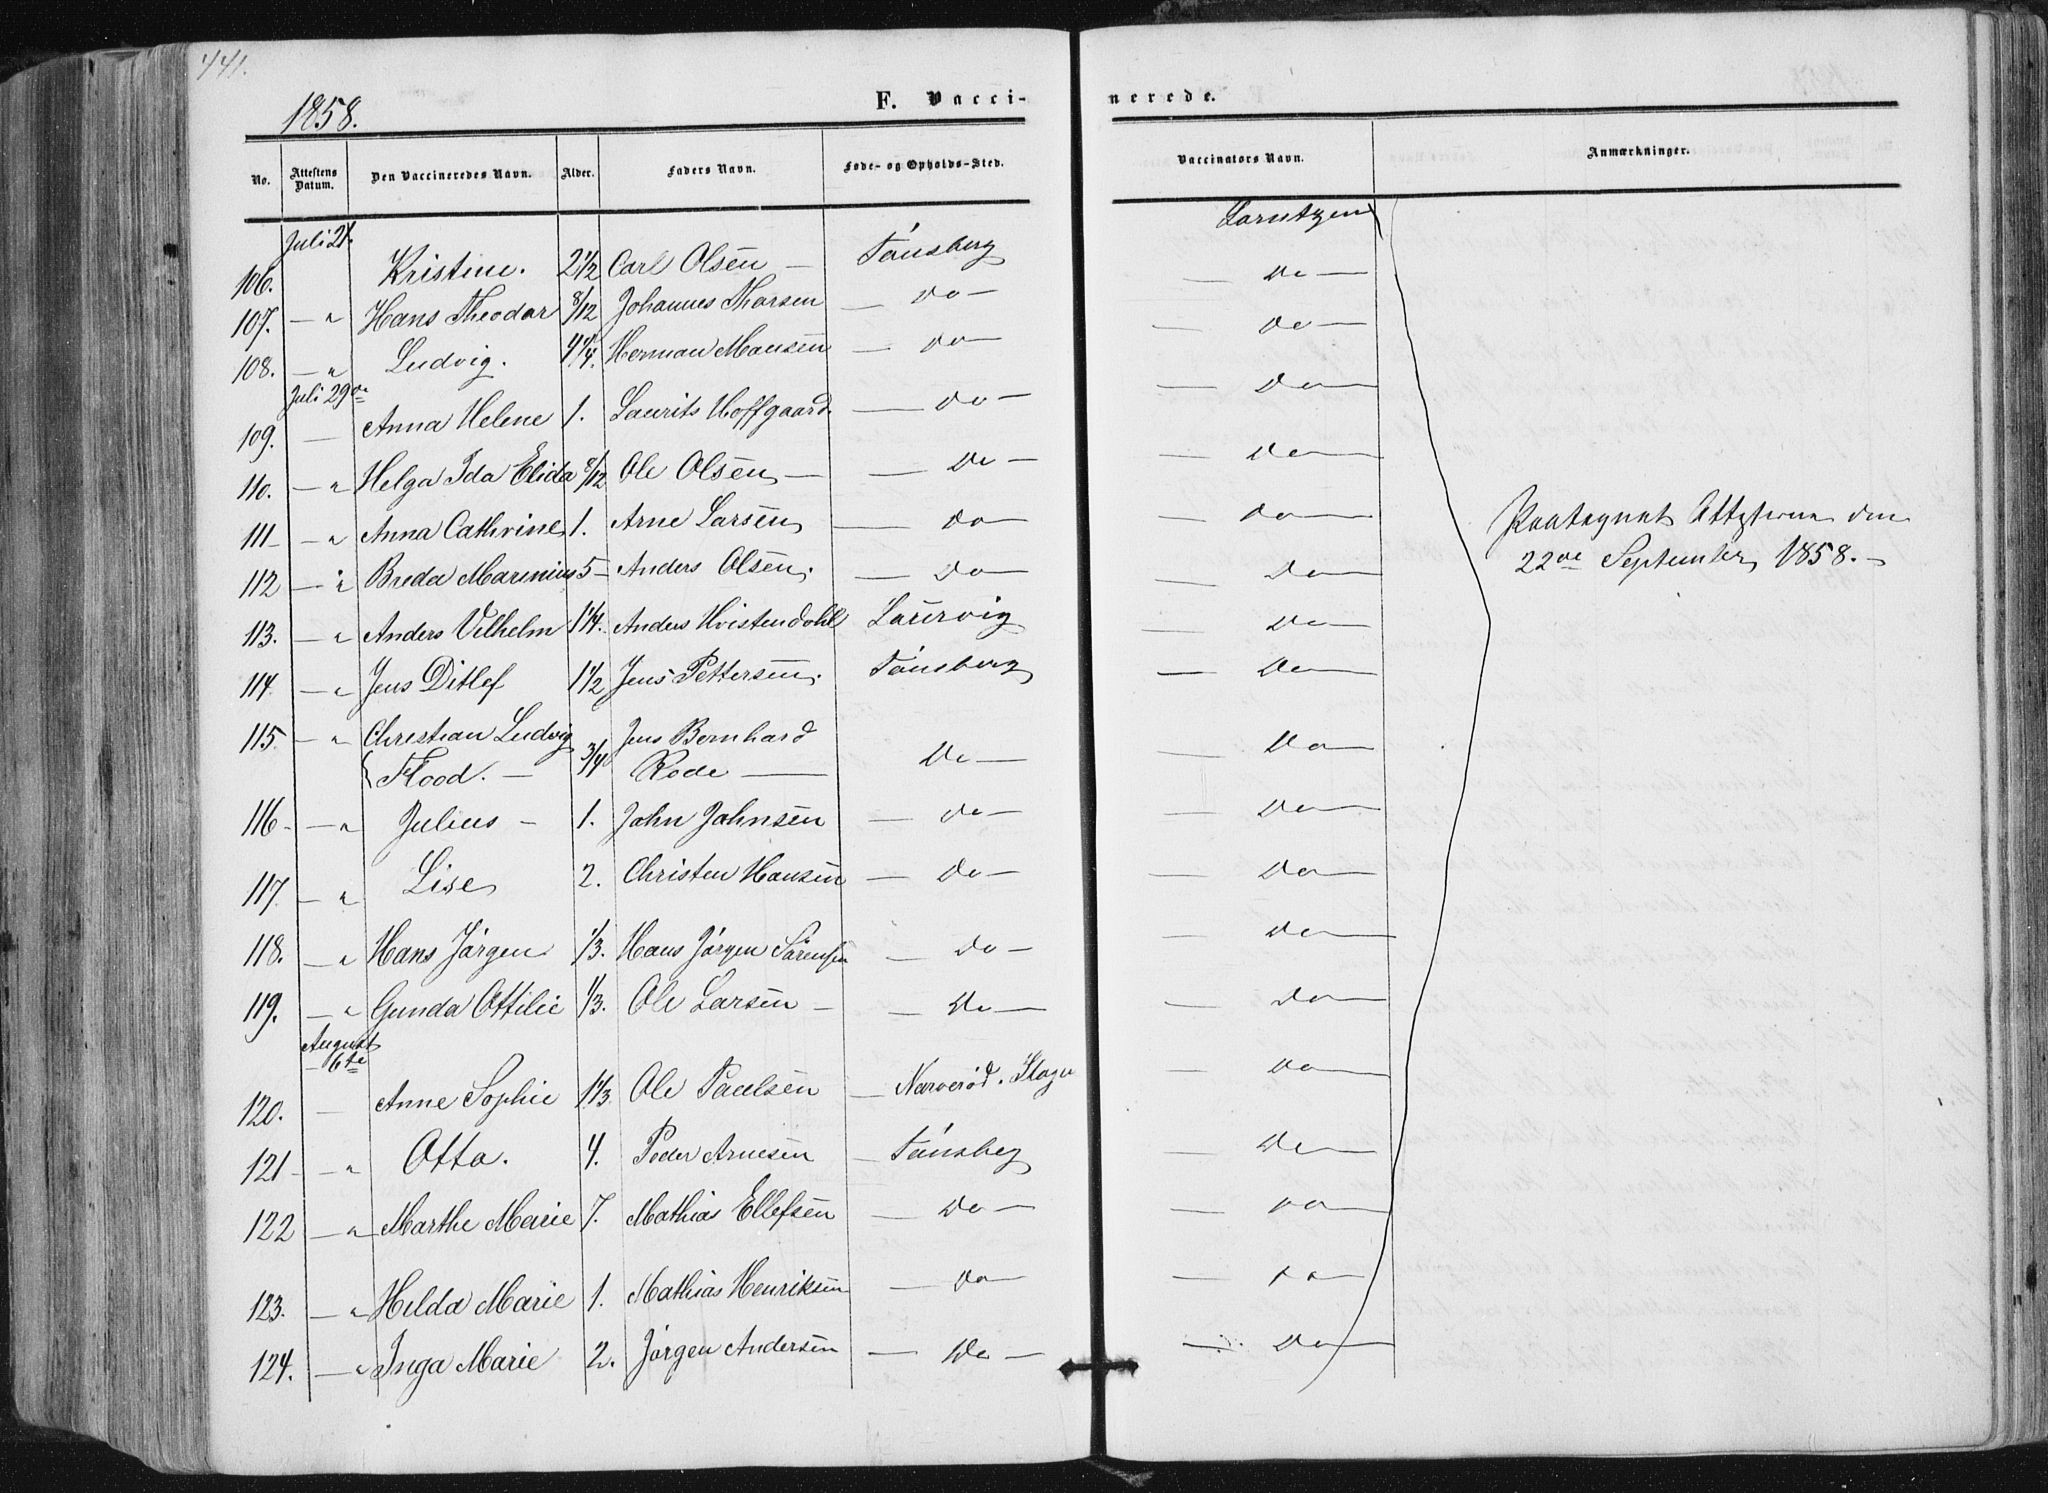 441.
1858.
F. Vacci-
nerede.
No. Attestens Datum. Den Vaccineredes Navn. Alder. Faders Navn. Føde- og Opholds-Sted. Vaccinators Navn. Anmærkninger.
Juli 21. Lorntzen
106. Kristine. 2 1/2 Carl Olsen — Tönsberg — Do —
107. — " Hans Theodor 8/12 Johannes Thorsen — Do — — Do —
108. — " Ludvig. 4 1/4. Herman Mansen — Do — — Do —
Juli 29de
109. — Anna Helene 1. Laurits Hoffgaard. — Do — — Do —
110. — " Helga Ida Elida 8/12 Ole Olsen — — Do — — Do —
111 — " Anna Cathrine 1. Arne Larsen — Do — — Do —
112 — " Breda Marinius 5 — Anders Olsen. — Do — — Do —
113. — " Anders Vilhelm 1 1/4. Anders Hvistendahl Laurvig — Do —
114. — " Jens Ditlef 1 1/2 Jens Pettersen. Tönsberg — Do —
115. — " Christian Ludvig Jens Bernhard
Flood. — 3/4 Rode — Do — — Do —
116 — — " Julius — 1. John Johnsen — Do — — Do —
117. — " Lise 2. Christen Hansen — Do — — Do —
118. — " Hans Jörgen 1/3. Hans Jörgen Sörensen — Do — — Do —
119. — " Gunda Ottilie 1/3. Ole Larsen — — Do — — Do —
August
6te
120. — Anne Sophie 1 1/3. Ole Paulsen — Narveröd. Slagn — Do —
121 — — " Otto. 4. Peder Arnesen — Tönsberg — Do —
122 — " Marthe Marie 7. Mathias Ellefsen — Do — — Do —
123. — " Hilda Marie 1. Mathias Henriksen — Do — — Do —
124. — " Inga Marie 2. Jörgen Andersen — Do — — Do —
Paategnet Attesterne den
22de September 1858. —